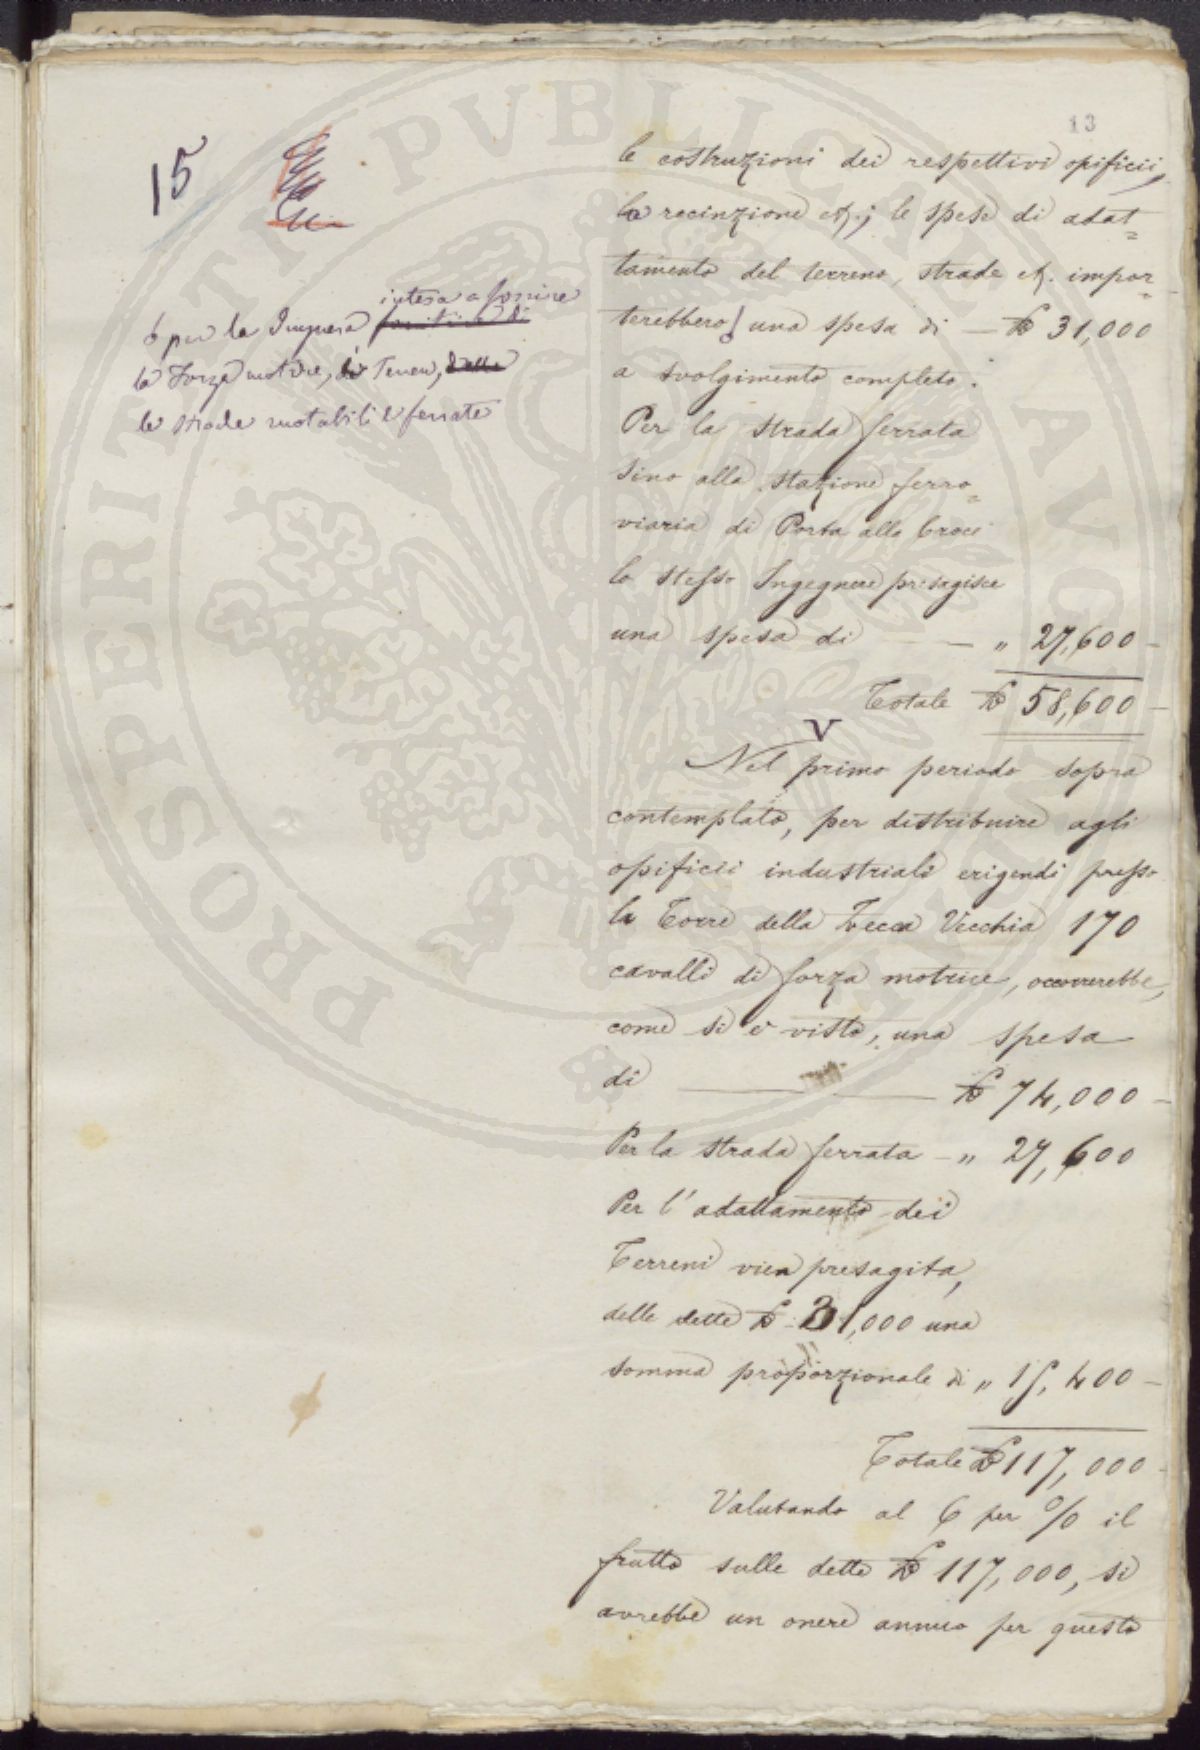 13
15
intesa a fornire
o per la Impresa fornitrice di
la Forza motrice, di Terreni, delle
le strade rotabili e ferrate
le costruzioni dei respettivi opificii,
la recinzione &c.; le spese di adat=
tamento del terreno, strade &c. impor=
terebbero una spesa di — £ 31,000
a svolgimento completo.
Per la strada ferrata
sino alla stazione ferro=
viaria di Porta alla Croce
lo stesso Ingegnere presagisce
una spesa di — „ 27,600 —
Totale £ 58,600 —
V
Nel primo periodo sopra
contemplato, per distribuire agli
opificii industriali erigendi presso
la Torre della Zecca Vecchia 170
cavalli di forza motrice, occorrerebbe,
come si è visto, una spesa
di — £ 74,000 —
Per la strada ferrata — „ 27,600
Per l'adattamento dei
Terreni vien presagita,
delle dette £ 31,000 una
somma proporzionale di „ 15,400 —
Totale £ 117,000 —
Valutando al 6 per % il
frutto sulle dette £ 117,000, si
avrebbe un onere annuo per questo
PROSPERITATI PVBLICAE AVGENDAE